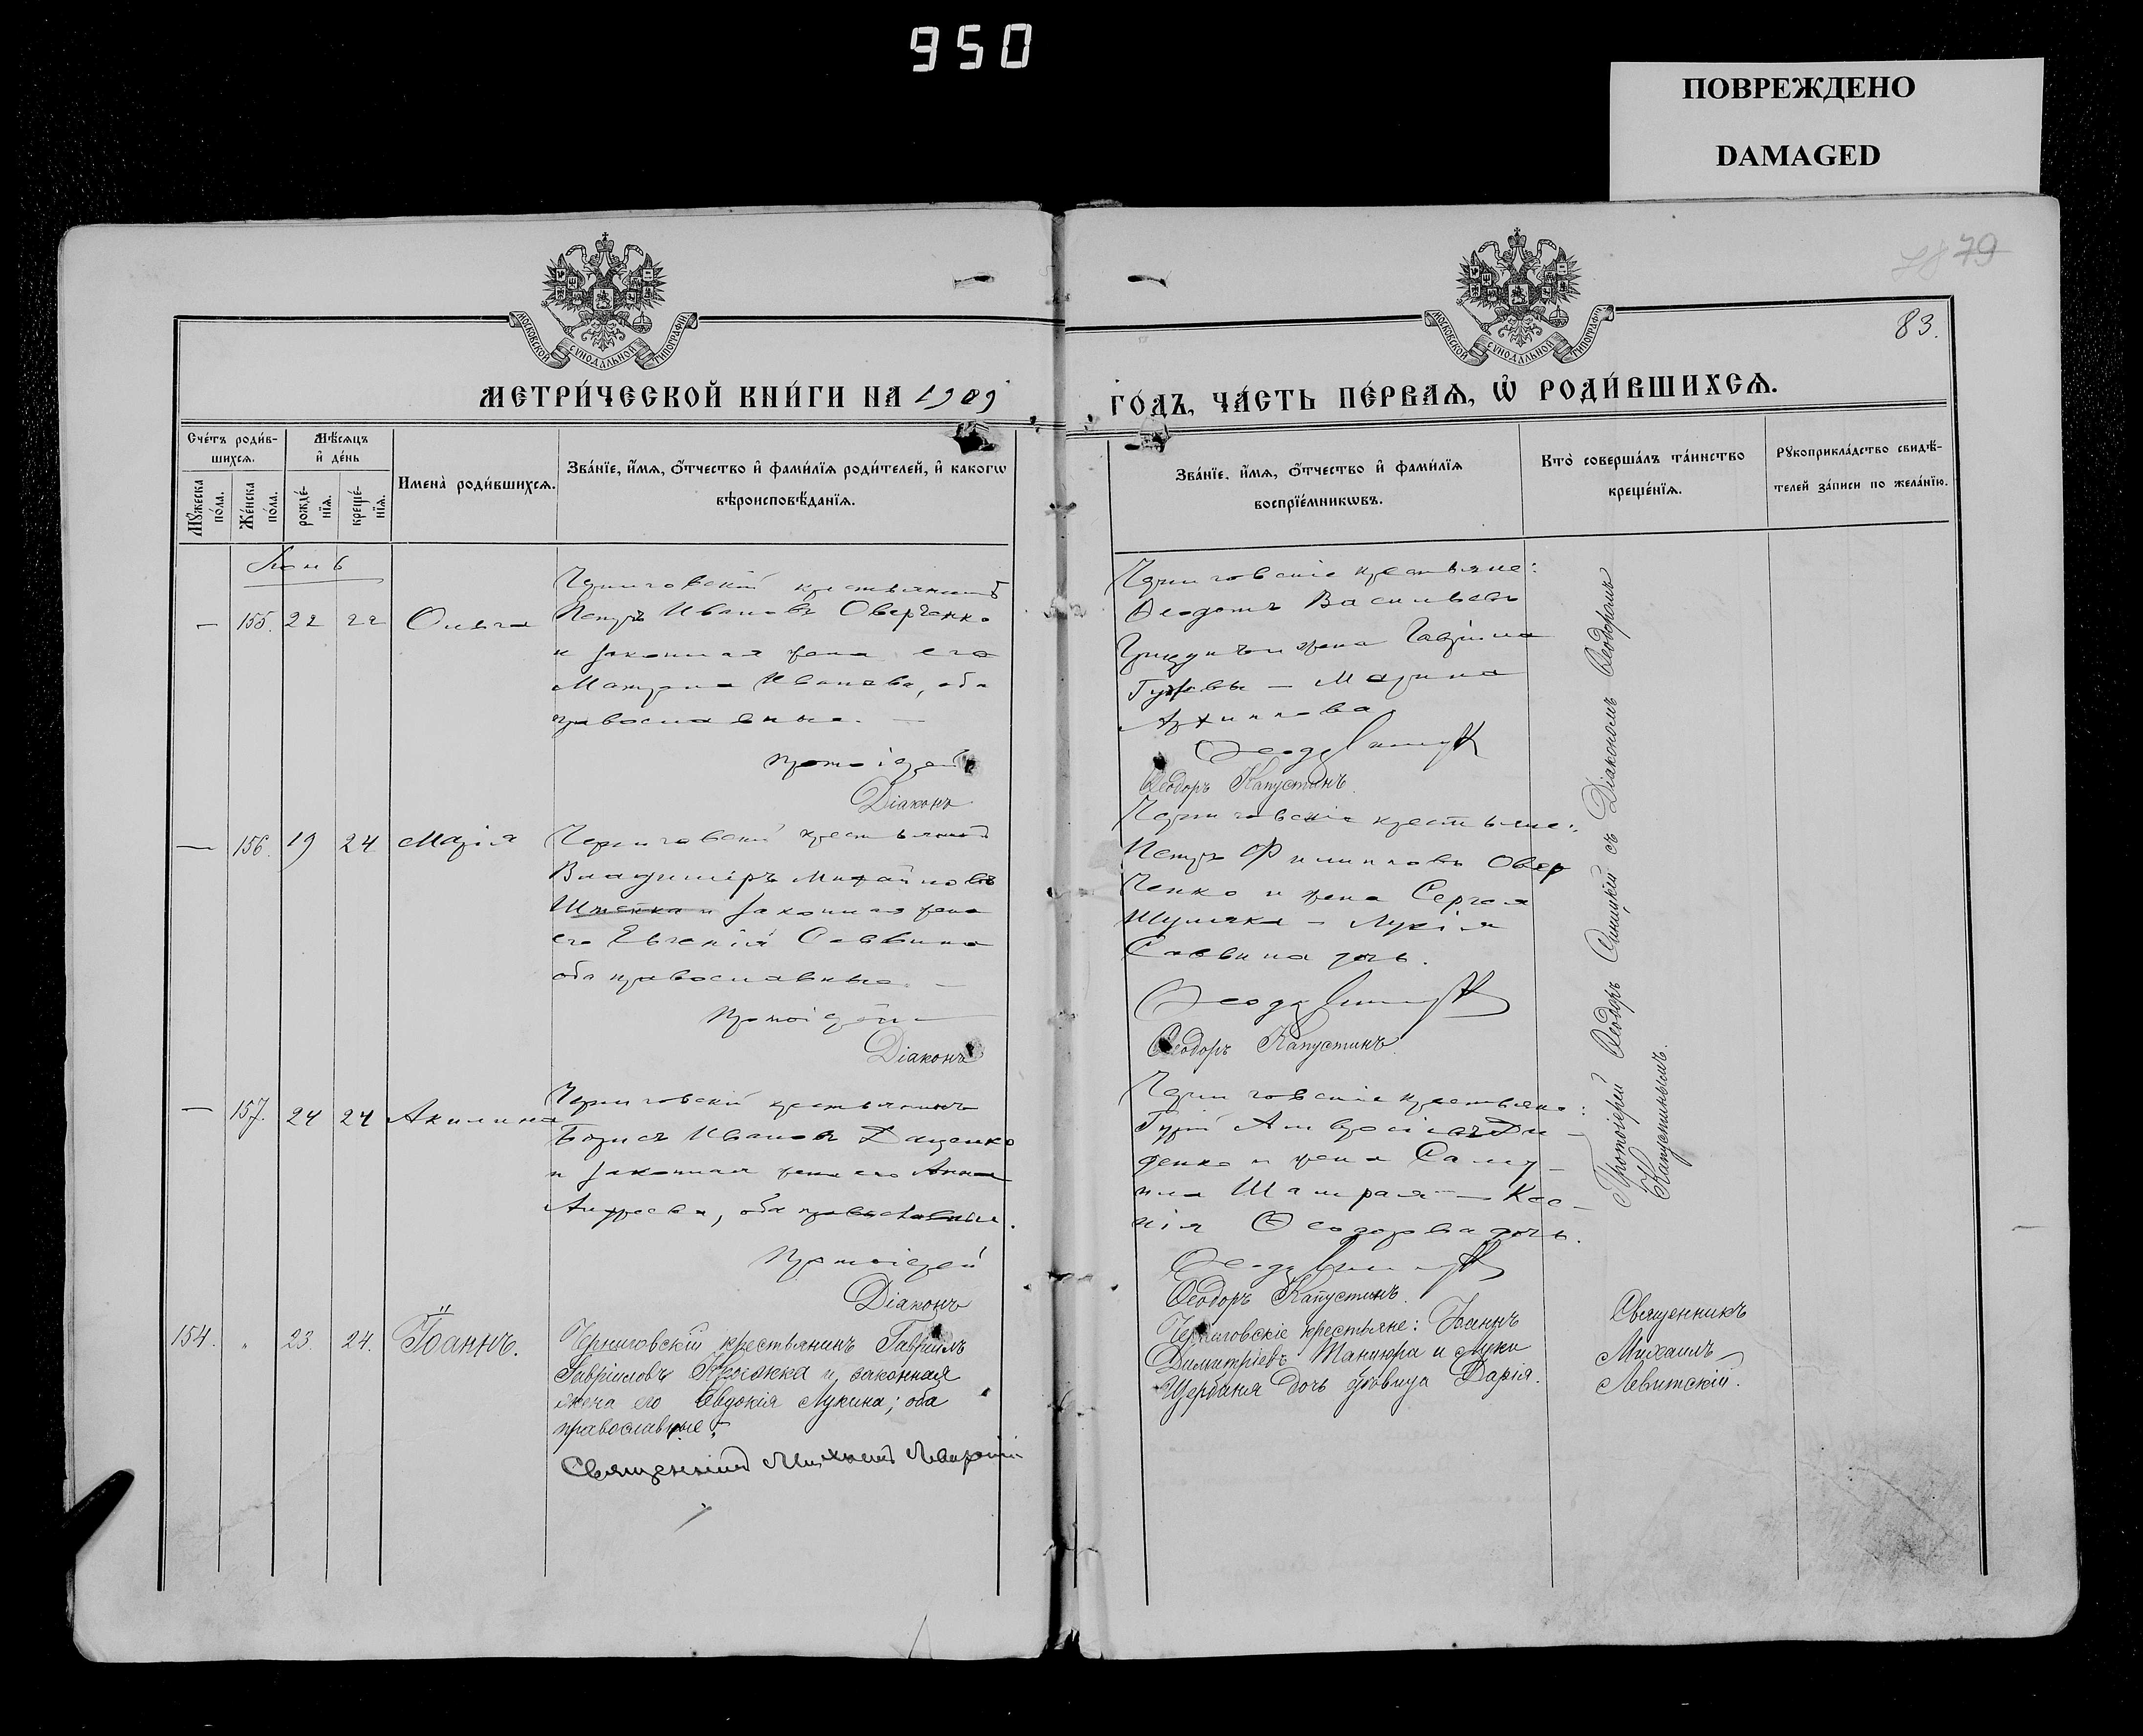 950
ПОВРЕЖДЕНО
DAMAGED
79
83.
МОСКОВСКОЙ СѴНОДАЛЬНОЙ ТИПОГРАФІИ
МОСКОВСКОЙ СѴНОДАЛЬНОЙ ТИПОГРАФІИ
МЕТРИ́ЧЕСКОЙ КНИ́ГИ НА 1909
ГО́ДЪ, ЧА́СТЬ ПЕ́РВАѦ, Ѡ҆ РОДИ́ВШИХСѦ.
Сче́тъ роди́в-
шихсѧ.
Мѣ́сѧцъ
и҆ де́нь
Мꙋ́жеска по́ла.
Же́нска по́ла.
рожде́-
нїѧ.
креще́-
нїѧ.
Имена̀ роди́вшихсѧ.
Зва́нїе, и҆́мѧ, ѻ҆́тчество и҆ фами́лїѧ роди́телей, и҆ какогѡ
вѣроисповѣ́данїѧ.
Зва́нїе, и҆́мѧ, ѻ҆́тчество и҆ фами́лїѧ
воспрїе́мникѡвъ.
Кто̀ соверша́лъ та́инство
креще́нїѧ.
Рꙋкоприкла́дство свидѣ́-
телей за́писи по жела́нїю.
Іюнь
— 155. 22 22 Ольга
Черниговскій крестьянинъ
Петръ Ивановъ Оверченко
и законная жена его
Матрона Иванова, оба
православные. —
Протоіерей
Діаконъ
Черниговскіе крестьяне:
Ѳеодотъ Васильевъ
и жена Гавріила
— Марина
Архипова
Ѳеодоръ Капустинъ.
— 156. 19 24 Марія
Черниговскій крестьянинъ
Владиміръ Михайловъ
и законная жена
его Евгенія Саввина
оба православные. —
Протоіерей
Діаконъ
Черниговскіе крестьяне:
Петръ Филипповъ Овер
ченко и жена Сергея
Шумяка — Лукія
Саввина дочь.
Ѳеодоръ Капустинъ
— 157. 24 24 Акилина
Черниговскій крестьянинъ
Борисъ Ивановъ Даценко
и законная жена его Анна
Андреева, оба православные.
Протоіерей
Діаконъ
Черниговскіе крестьяне:
Гурій Амвросіевъ Ди-
денко и жена Саму-
ила — Ксе-
нія Ѳеодорова дочь.
Ѳеодоръ Капустинъ.
Протоіерей Ѳеодоръ Синицкій съ Діакономъ Ѳеодоромъ
Капустинымъ.
154. " 23. 24. Іоаннъ.
Черниговскій крестьянинъ Гавріилъ
Гавріиловъ и законная
жена его Евдокія Лукина; оба
православные.
Священникъ Михаилъ Левитскій
Черниговскіе крестьяне: Іоаннъ
Димитріевъ Танцюра и Луки
Щербаня дочь вдовица Дарія.
Священникъ
Михаилъ
Левитскій.